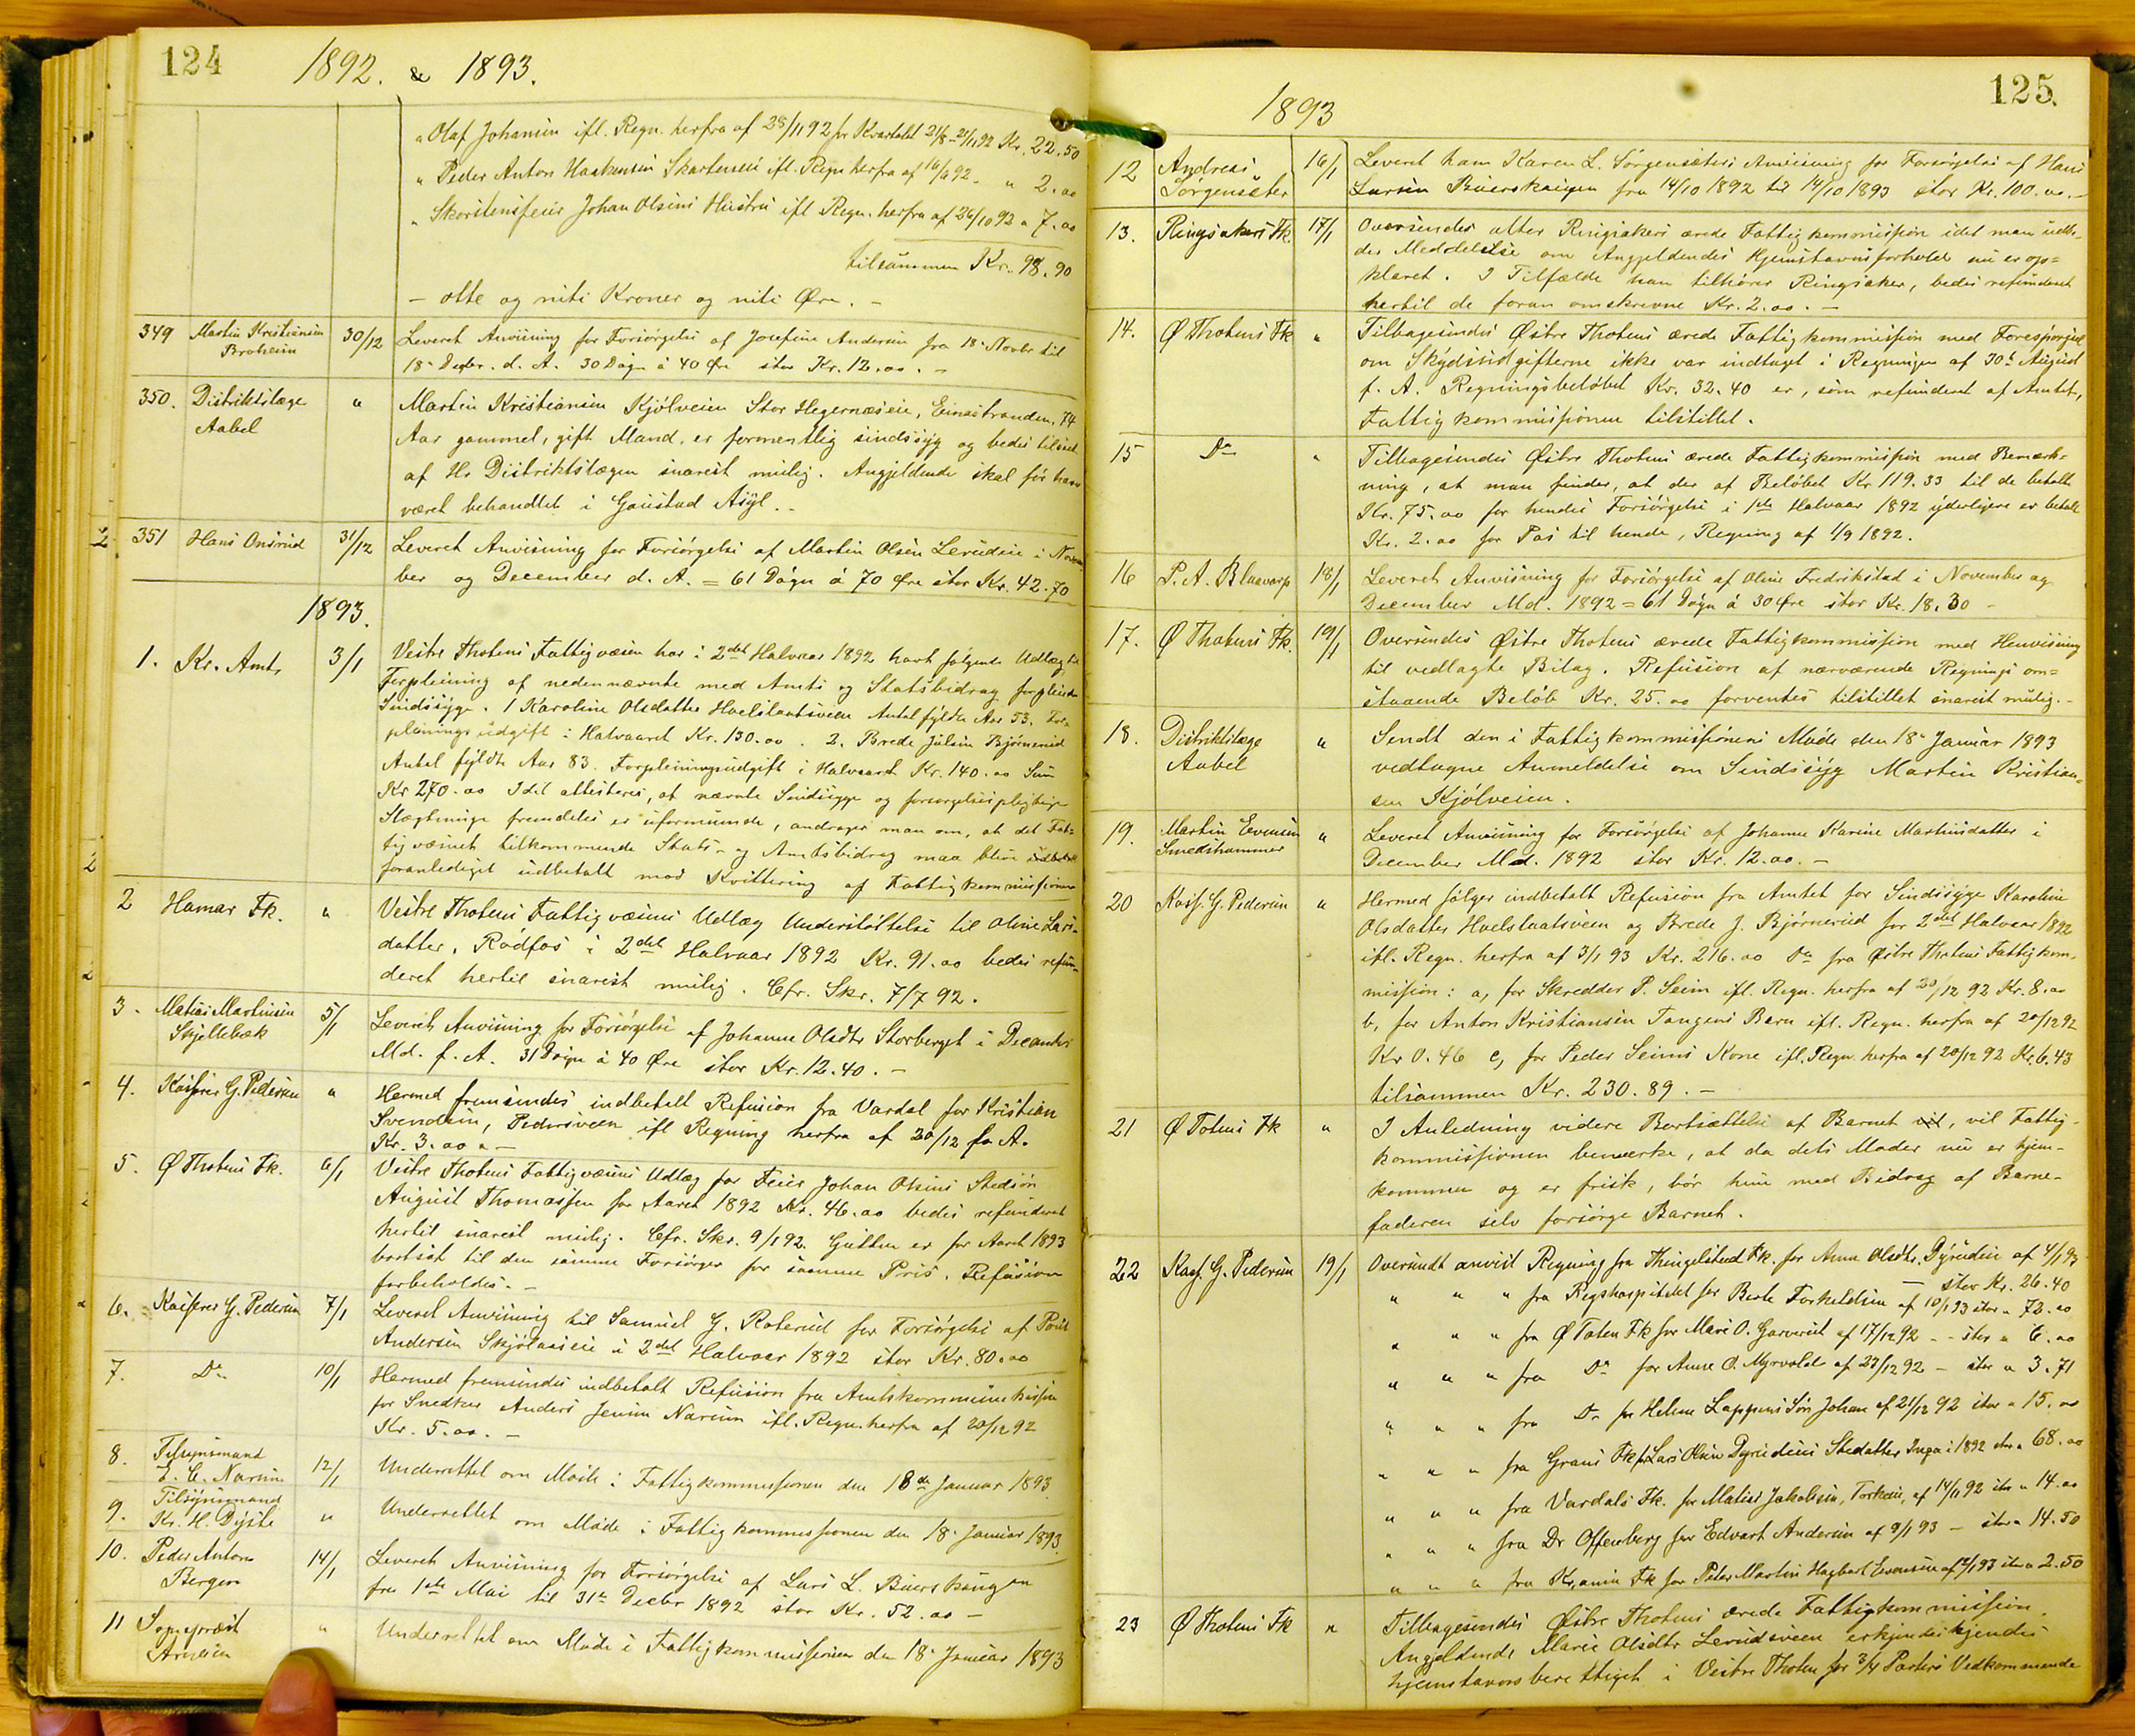 124
1892. & 1893.
" Olaf Johansen ifl. Regn. herfra af 28/11 92 for Kvartalet 21/8-21/11 92 Kr. 22.50
" Peder Anton Haakensen Skartsseie ifl. Regn herfra af 16/9 92 - " 2.00
" Skorstensfeier Johan Olsens Hustru ifl Regn. herfra af 26/10 92 " 7.00
tilsammen Kr. 98.90
- otte og niti Kroner og niti Øre. -
349 Martin Kristiansen Broheim 30/12 Leveret Anvisning for Forsørgelse af Josefine Andersen fra 18. Novbr til
18. Decbr. d. A. 30 Døgn à 40 Øre stor Kr. 12.00. -
350. Distriktslæge Aabel " Martin Kristiansen Kjølveien Stor Hegernæseie, Einastranden, 74
Aar gammel, gift Mand, er formentlig sindssyg og bedes tilseet
af Hr Distriktslægen snarest mulig. Angjeldende skal før have
været behandlet i Gaustad Asyl. -
351 Hans Onsrud 31/12 Leveret Anvisning for Forsørgelse af Martin Olsen Lerudeie i Novem
ber og December d. A. = 61 Døgn à 70 Øre stor Kr. 42.70
1893.
1. Kr. Amt. 3/1 Vestre Thotens Fattigvæsen har i 2det Halvaar 1892 havt følgende Udlæg til
Forpleining af nedennævnte med Amts og Statsbidrag forpleiede
Sindssyge. 1 Karoline Olsdatter Hoelstuatsveen Antal fyldte Aar 53. For-
pleiningsudgift i Halvaaret Kr. 130.00. 2. Brede Julsen Bjørnerud
Antal fyldte Aar 83. Forpleiningsudgift i Halvaaret Kr. 140.00 Sum
Kr 270.00 Idet attesteres, at nævnte Sindssyge og forsørgelsespligtige
Slægtninge fremdeles er uformuende, andrages man om, at det Fat-
tigvæsnet tilkommende Stats- og Amtsbidrag maa blive
foranlediget udbetalt mod Kvittering af Fattigkommissionen
2 Hamar Fk. " Vestre Thotens Fattigvæsens Udlæg Understøttelse til Oline Lars-
datter, Rødfos i 2det Halvaar 1892 Kr. 91.00 bedes refun-
deret hertil snarest mulig. Cfr. Skr. 7/7 92.
3. Matias Martinsen Skjellebæk 5/1 Leveret Anvisning for Forsørgelse af Johanne Olsdtr Storberget i December
Md. f. A. 31 Døgn à 40 Øre stor Kr. 12.40. -
4. Kasserer G. Pedersen " Hermed fremsendes indbetalt Refusion fra Vardal for Kristian
Svendsen, Pedersveen ifl Regning herfra af 20/12 f. A.
Kr. 3.00. -
5. Ø Thotens Fk. 6/1 Vestre Thotens Fattigvæsens Udlæg for Feier Johan Olsens Stedsøn
August Thomassen for Aaret 1892 Kr. 46.00 bedes refunderet
hertil snarest mulig. Cfr. Skr. 9/1 92. Gutten er for Aaret 1893
bortsat til den samme Forsørger for samme Pris. Refusion
forbeholdes. -
6. Kasserer G. Pedersen 7/1 Leveret Anvisning til Samuel G. Roterud for Forsørgelse af Poul
Andersen Skjølaaseie i 2det Halvaar 1892 stor Kr. 80.00
7. Do 10/1 Hermed fremsendes indbetalt Refusion fra Amtskommunekassen
for Snedker Anders Jensen Narum ifl. Regn. herfra af 20/12 92
Kr. 5.00. -
8. Tilsynsmand E. C. Narum 12/1 Underrettet om Møde i Fattigkommissionen den 18de Januar 1893.
9. Tilsynsmand Kr. H. Dyste " Underrettet om Møde i Fattigkommissionen den 18. Januar 1893.
10. Peder Anton Bergen 14/1 Leveret Anvisning for Forsørgelse af Lars L. Buerskaugen
fra 1ste Mai til 31te Decbr 1892 stor Kr. 52.00 -
11 Sognepræst Arnesen " Underrettet om Møde i Fattigkommissionen den 18. Januar 1893
125.
1893
12 Andreas Sørgensæter 16/1 Leveret ham Karen L. Sørgensæters Anvisning for Forsørgelse af Hans
Larsen Buerskaugen fra 14/10 1892 til 14/10 1893 stor Kr. 100.00. -
13. Ringsakers Fk. 17/1 Oversendes atter Ringsakers ærede Fattigkommission idet man udbe-
der Meddelelse om Angjeldendes Hjemstavnsforhold nu er op-
klaret. I Tilfælde han tilhører Ringsaker, bedes refunderet
hertil de foran omskrevne Kr. 2.00. -
14. Ø Thotens Fk " Tilbagesendes Østre Thotens ærede Fattigkommission med Forespørgsel
om Skydsudgifterne ikke var indtaget i Regningen af 30te August
f. A. Regningsbeløbet Kr. 32.40 er, som refunderet af Amtet,
Fattigkommissionen tilstillet.
15 Do " Tilbagesendes Østre Thotens ærede Fattigkommission med Bemærk-
ning, at man finder, at der af Beløbet Kr. 119.33 til de betalte
Kr. 75.00 for hendes Forsørgelse i 1ste Halvaar 1892 yderligere er betalt
Kr. 2.00 for Pas til hende, Regning af 1/9 1892.
16 P. A. Blaavarp 18/1 Leveret Anvisning for Forsørgelse af Oline Fredrikstad i November og
December Md. 1892 = 61 Døgn à 30 Øre stor Kr. 18.30 -
17. Ø Thotens Fk. 19/1 Oversendes Østre Thotens ærede Fattigkommission med Henvisning
til vedlagte Bilag. Refusion af nærværende Regnings om-
staaende Beløb Kr. 25.00 forventes tilstillet snarest mulig. -
18. Distriktslæge Aabel " Sendt den i Fattigkommissionens Møde den 18. Januar 1893
vedtagne Anmeldelse om Sindssyg Martin Kristian-
sen Kjølveien.
19. Martin Evensen Smedshammer " Leveret Anvisning for Forsørgelse af Johanne Karine Martinsdatter i
December Md. 1892 stor Kr. 12.00. -
20 Kass. G. Pedersen " Hermed følger indbetalt Refusion fra Amtet for Sindssyge Karoline
Olsdatter Hoelstuatsveen og Brede J. Bjørnerud for 2det Halvaar 1892
ifl. Regn. herfra af 3/1 93 Kr. 216.00 Do fra Østre Thotens Fattigkom-
mission: a, for Skredder P. Seim ifl. Regn. herfra af 20/12 92 Kr. 8.00
b, for Anton Kristiansen Tangens Barn ifl. Regn. herfra af 20/12 92
Kr 0.46 c, for Peder Seims Kone ifl. Regn. herfra af 20/12 92 Kr. 6.43
tilsammen Kr. 230.89. -
21 Ø Totens Fk " I Anledning videre Bortsættelse af Barnet vil, vil Fattig-
kommissionen bemærke, at da dets Moder nu er hjem-
kommen og er frisk, bør hun med Bidrag af Barne-
faderen selv forsørge Barnet.
22 Kass. G. Pedersen 19/1 Oversendt anvist Regning fra Thingelstad Fk. for Anne Olsdtr. Dyrudeie af 4/1 93
- stor Kr. 26.40
" " " fra Rigshospitalet for Berte Torkeldsen af 10/1 93 stor " 72.00
" " " fra Ø Toten Fk for Mari O. Garverst af 17/12 92 - - stor " 6.00
" " " fra Do for Anne O. Myrvold af 27/12 92 - stor " 3.71
" " " fra Do for Helene Lappens Søn Johan af 21/12 92 stor " 15.00
" " " fra Grans Fk f. Lars Olsen Dyrudeies Stedatter Inga i 1892 stor " 68.00
" " " fra Vardals Fk. for Matias Jakobsen, Torkeie, af 14/11 92 stor " 14.00
" " " fra Dr Offenberg for Edvart Andersen af 9/1 93 - stor " 14.50
" " " fra Kr.ania Fk for Peter Martin Hagbart Evensen af 12/1 93 stor " 2.50
23 Ø Thotens Fk " Tilbagesendes Østre Thotens ærede Fattigkommission.
Angjeldende Marie Olsdtr Lerudsveen erkjendes kjendes
hjemstavnsberettiget i Vestre Thoten for 3/4 Parters Vedkommende